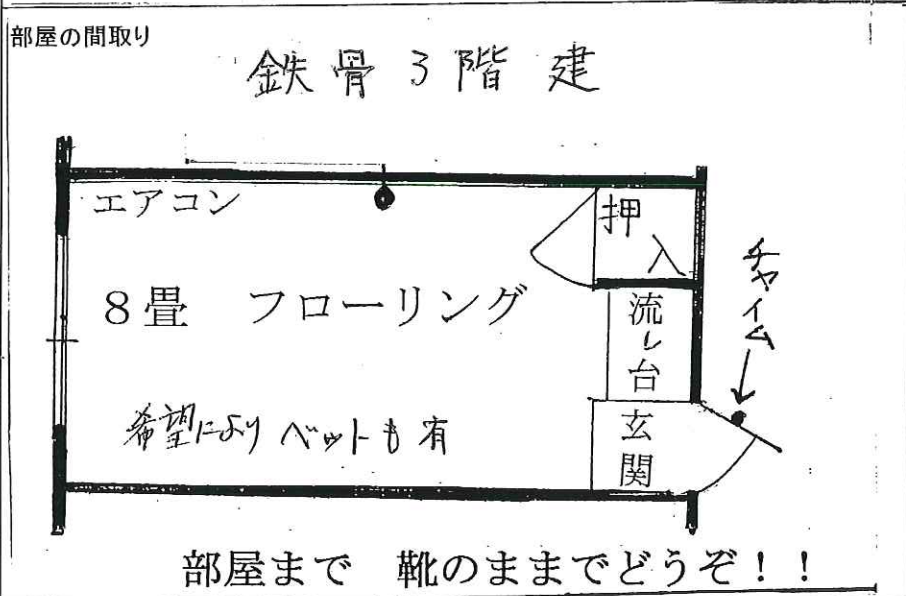 部屋の間取り
鉄骨3階建
エアコン
押入
チャイム
8畳 フローリング
流し台
希望により ベットも有
玄関
部屋まで 靴のままでどうぞ!!